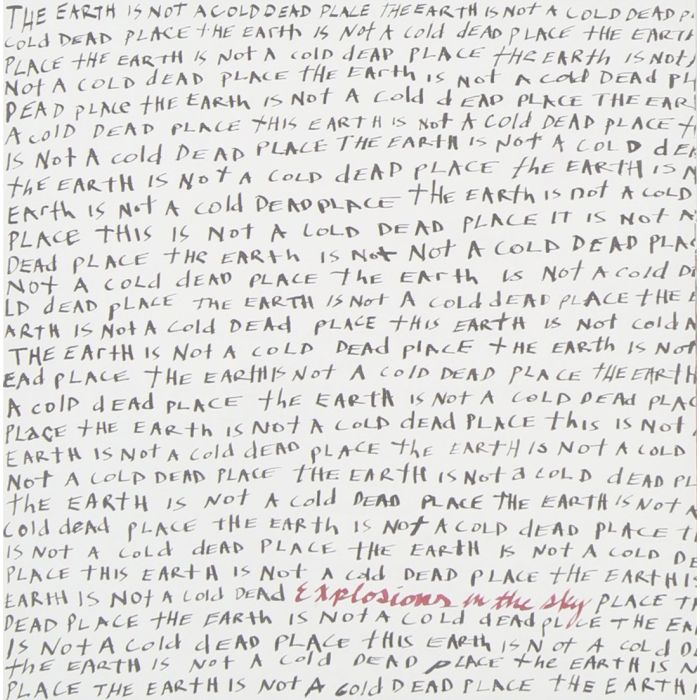 THE EARTH IS NOT A COLD DEAD PLACE THE EARTH IS NOT A COLD DEAD P
COLD DEAD PLACE tHE EARth IS NOt A cold dEAD PLACE tHE EARTH
PLACE tHE EARTH IS Not A cold dEAD PLACE tHE EARth IS NOt
Not A COLD dEAD PLACE tHE EArth is Not A Cold DEAd PL
DEAD pLACe tHE EArtH IS Not A Cold d EAD PLACE THE EAR
A cOlD DEAD PLACE tHIS EARTH is Not A Cold DEAD PLACE t
IS Not A cold DEAD PLACE THE EARTH IS NOt A COLD dEA
the EARtH IS NOt A COLD dEAD PLACE thE EARTH IS N
EARth IS Not A cold DEAD PLACE tHE EARth is not A COLD
PLACE THIS IS NOT A COLD DEAD PLACE IT IS NOt A
DEAd PLACE tHe EARtH IS Not Not A COLD DEAD PLAC
NOt A cold dEAD PLACE the EArth is Not A Cold D
LD dEAD pLACE THE EARTH IS Not A cold dEAD PLACE tHE
ARTH IS Not A cold DEAd PLACE tHIS EARTH is Not cold A
THE EArtH IS Not A COLD DEAD plACE tHE EARTH IS Not
EAd PLACE tHE EARTH IS NOT A COLD DEAD PLACE tHE EARtH
A cOlD dEAd PLACE the EARTH IS NOT A COLD DEAd PLAC
PLACE tHE EARth IS NOt A Cold dEAd PLACE this IS Not
EARTH IS NOt A cold dEAD pLACE the EARTH IS Not A COLD
Not A COLD DEAD PLACE tHE EARTH IS Not a COLD dEAD PL
the EARTH IS NOT A Cold DEAD PLACE THE EARTH IS NOT A
cold deAd PLACE THE EARTH IS NOT A COLD dEAD PLACE t
IS NOT A cold dEAD PLACE tHE EARTH IS NOT A COLD DE
PLACE THIS EARTH IS NOt A cold DEAD PLACE tHE EARTH I
EARTH IS NOt A Cold DEAD Explosions in the sky PLACE T
DEAD PLACE tHE EARth IS NOT A Cold dEAd pLACE tHE EA
IS NOt A Cold dEAD PLACE tHIS EARth IS NOT A COLD D
tHe EARTH IS Not A COld DEAD pLACE tHe EARTH IS N
PLACE THE EARTH IS NOT A Cold DEAD PLACE tHE EARTH